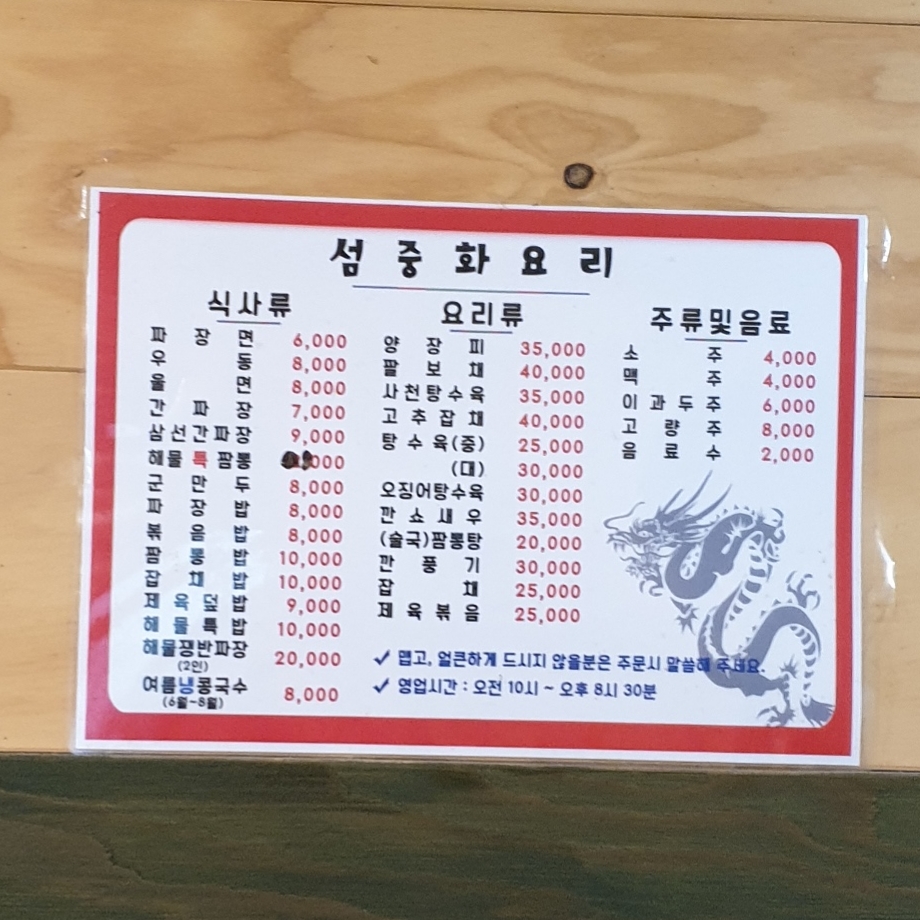 섬 중 화 요 리
식사류
파 장 면 6,000
우 동 8,000
울 면 8,000
간 파 장 7,000
삼선간파장 9,000
해물 특 짬뽕 000
군 만 두 8,000
파 장 밥 8,000
볶 음 밥 8,000
짬 뽕 밥 10,000
잡 채 밥 10,000
제 육 덮 밥 9,000
해 물 특 밥 10,000
해물쟁반파장 20,000
(2인)
여름냉콩국수 8,000
(6월~8월)
요리류
양 장 피 35,000
팔 보 채 40,000
사천탕수육 35,000
고 추 잡 채 40,000
탕 수 육(중) 25,000
(대) 30,000
오징어탕수육 30,000
깐 쇼 새 우 35,000
(술국)짬뽕탕 20,000
깐 풍 기 30,000
잡 채 25,000
제 육 볶 음 25,000
주류및음료
소 주 4,000
맥 주 4,000
이 과 두 주 6,000
고 량 주 8,000
음 료 수 2,000
✓ 맵고, 얼큰하게 드시지 않을분은 주문시 말씀해 주세요.
✓ 영업시간 : 오전 10시 ~ 오후 8시 30분